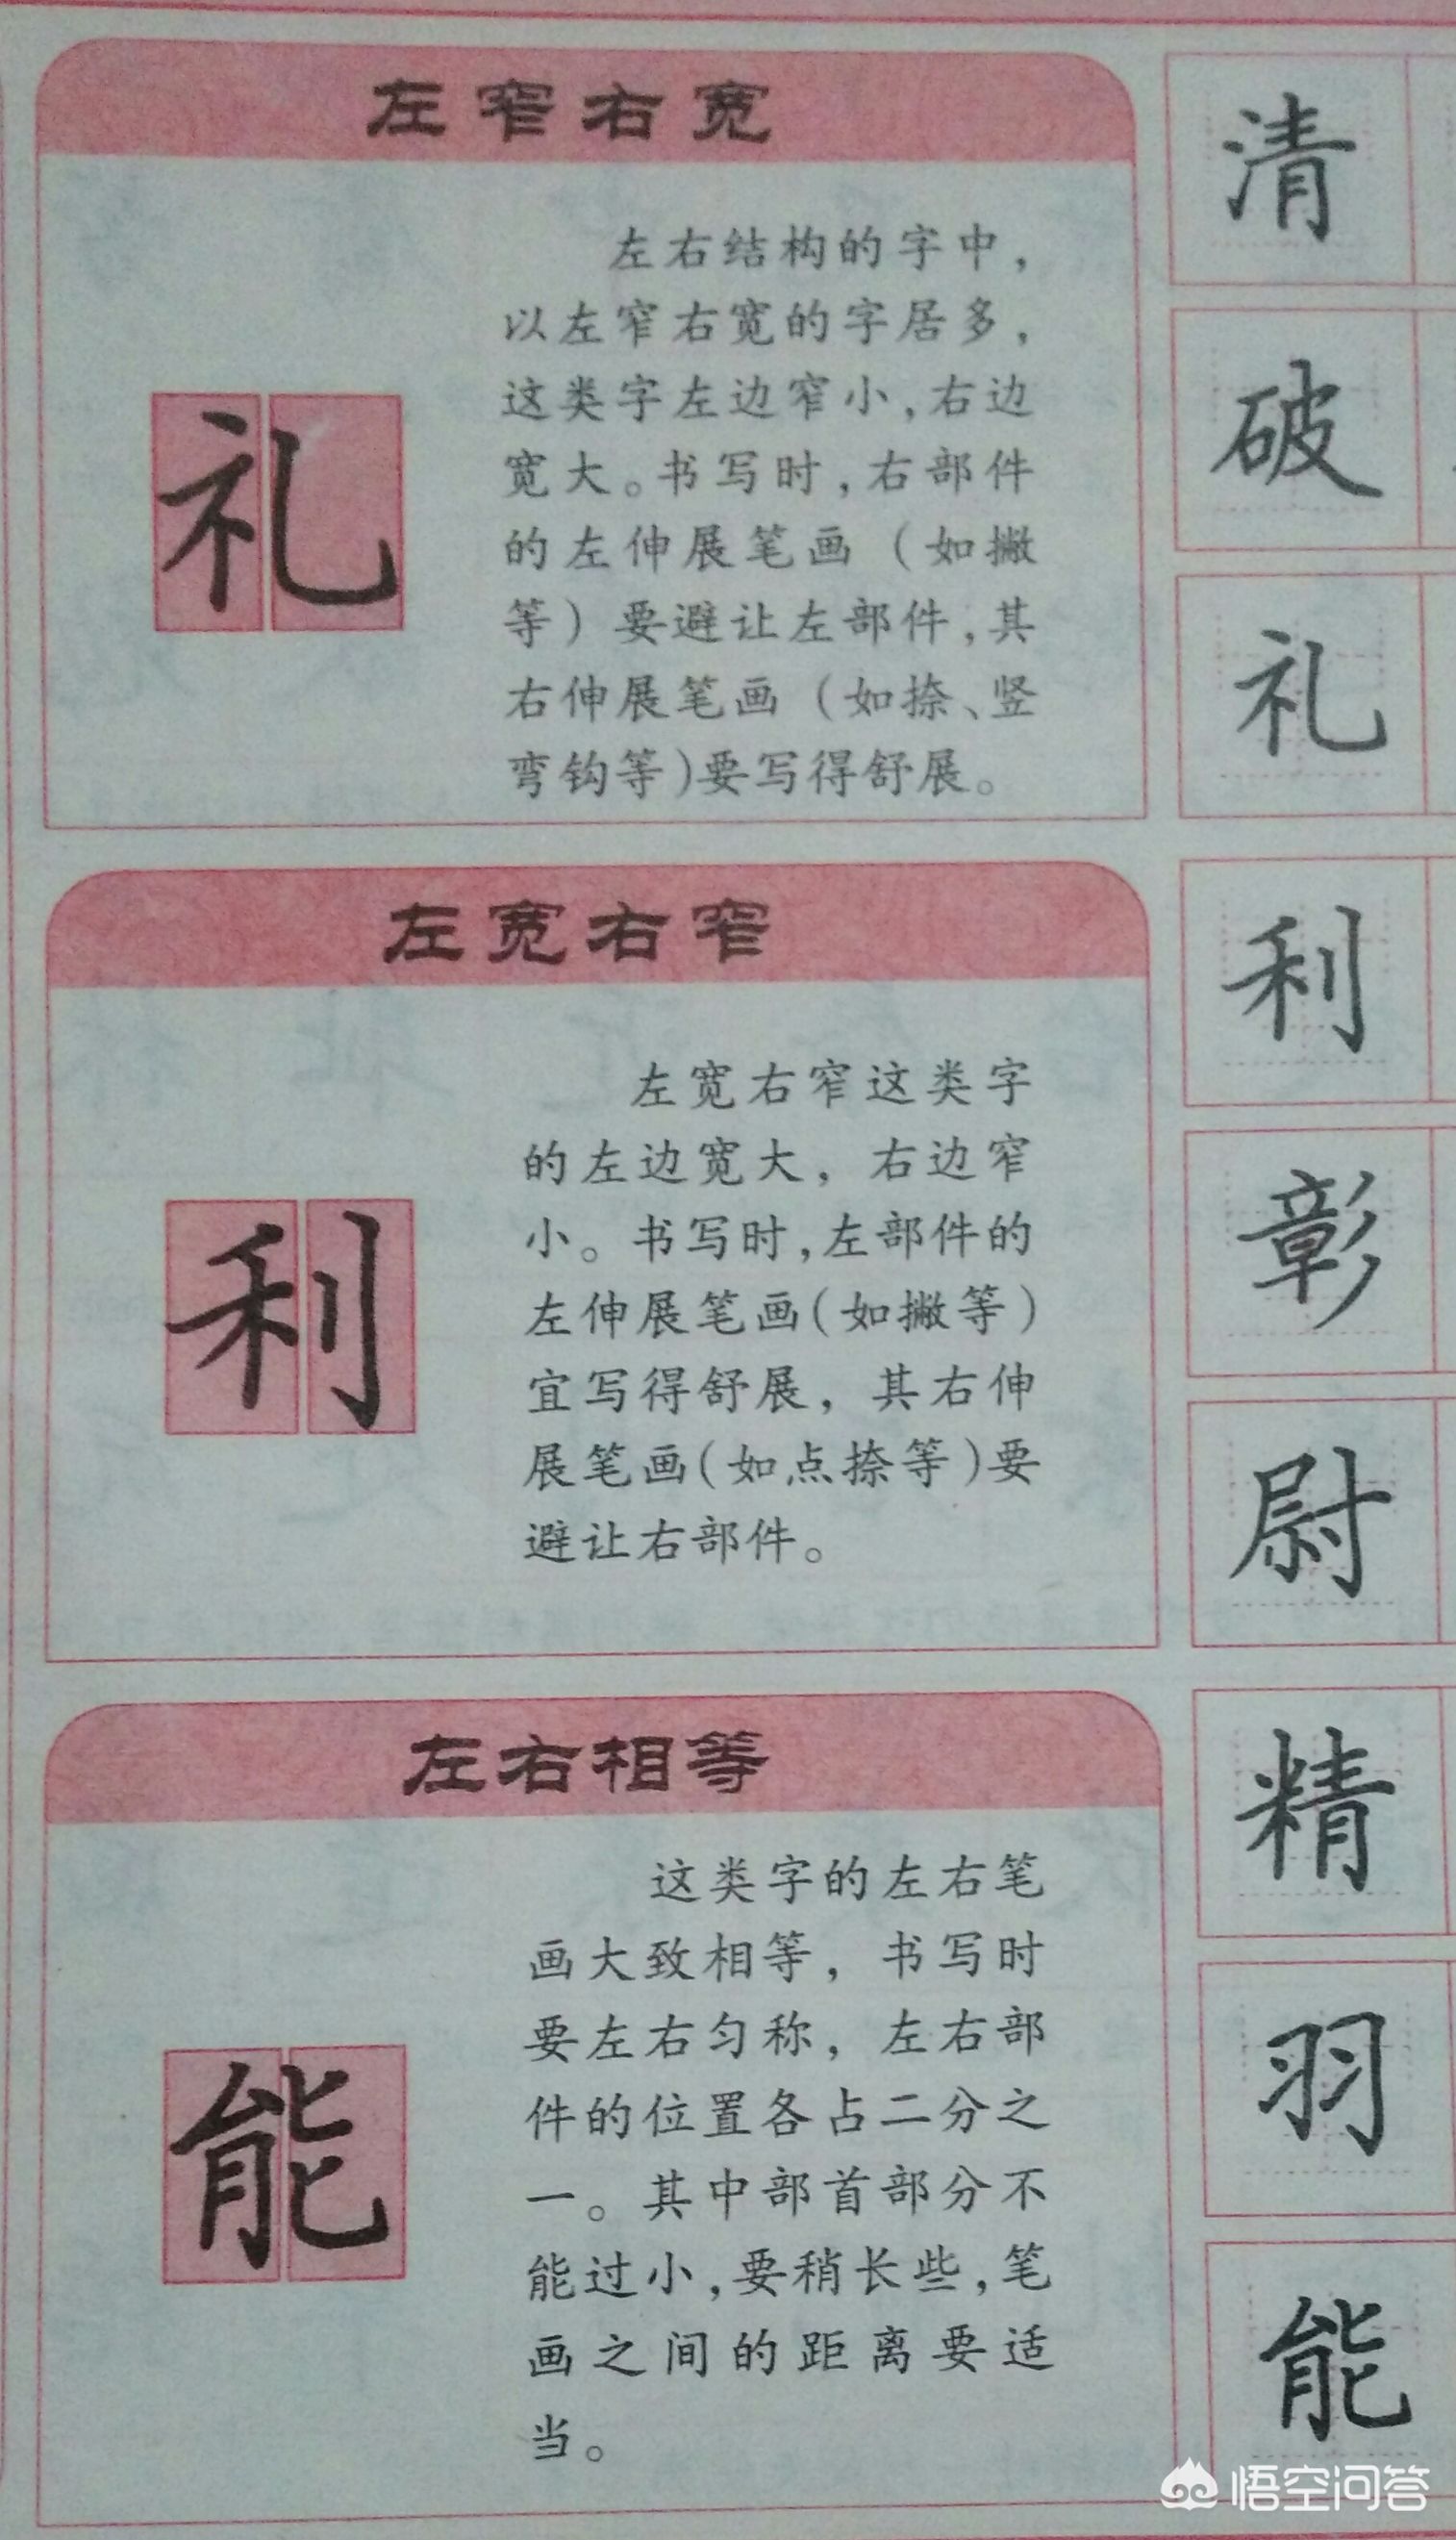 左窄右宽
礼
左右结构的字中，
以左窄右宽的字居多，
这类字左边窄小，右边
宽大。书写时，右部件
的左伸展笔画（如撇
等）要避让左部件，其
右伸展笔画（如捺、竖
弯钩等）要写得舒展。
清
破
礼
左宽右窄
利
左宽右窄这类字
的左边宽大，右边窄
小。书写时，左部件的
左伸展笔画（如撇等）
宜写得舒展，其右伸
展笔画（如点捺等）要
避让右部件。
利
彰
尉
左右相等
能
这类字的左右笔
画大致相等，书写时
要左右匀称，左右部
件的位置各占二分之
一。其中部首部分不
能过小，要稍长些，笔
画之间的距离要适
当。
精
羽
能
悟空问答